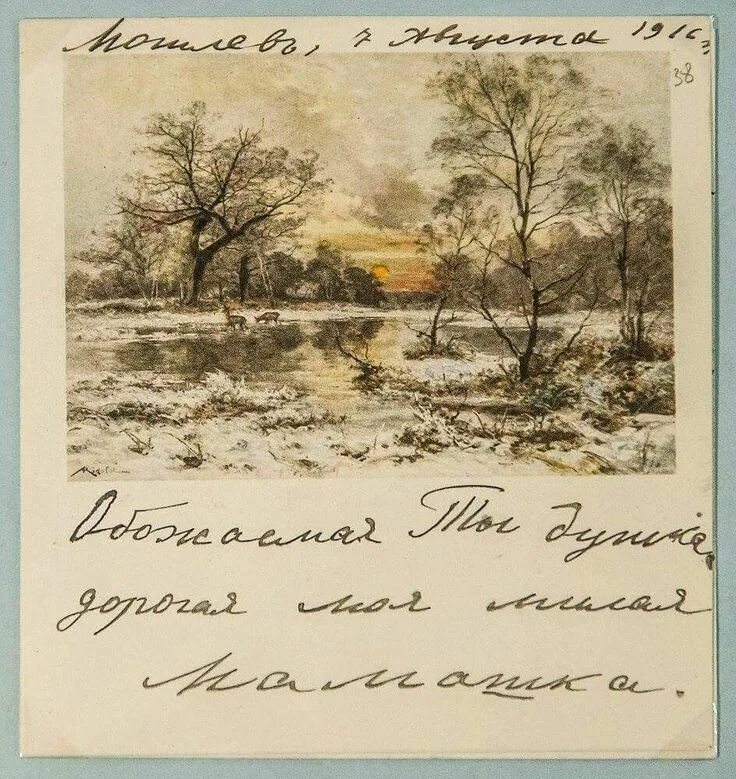 Могилевъ, 7 Августа 1916 г.
38
Обожаемая Ты душка,
дорогая моя милая
Мамашка.